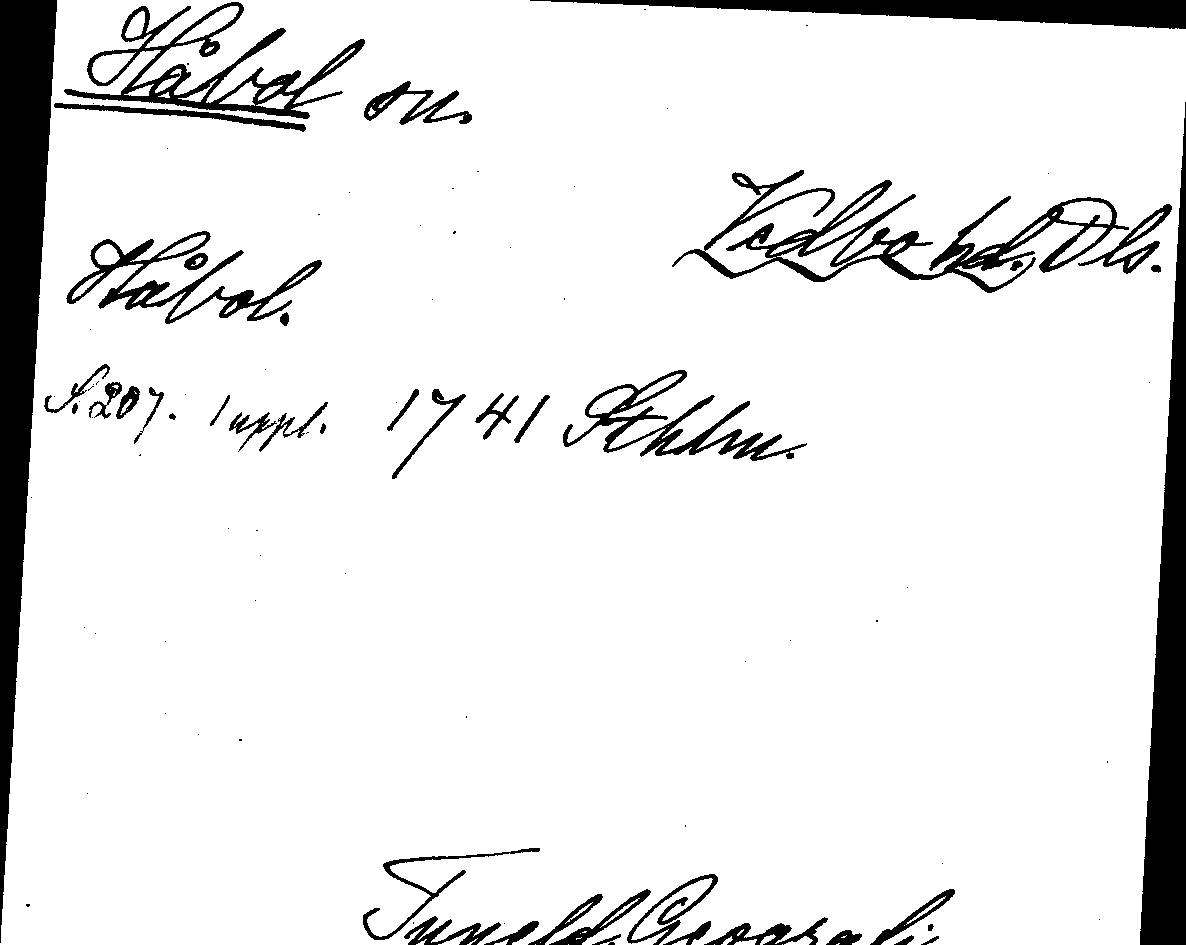 Håbol sn.
Vedbo hd. Dls.
Håbol.
S. 207. 1 uppl. 1741 Sthlm.
Tuneld, Geografi